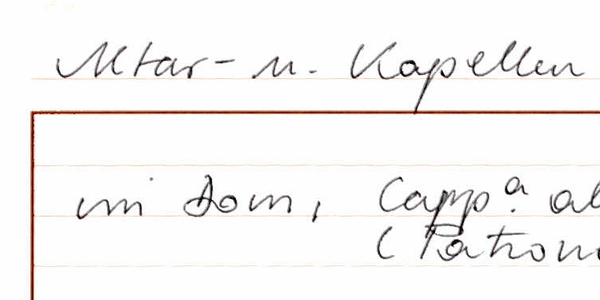 Altar- u. Kapellen
im Dom, Capp.ª al
(Patron